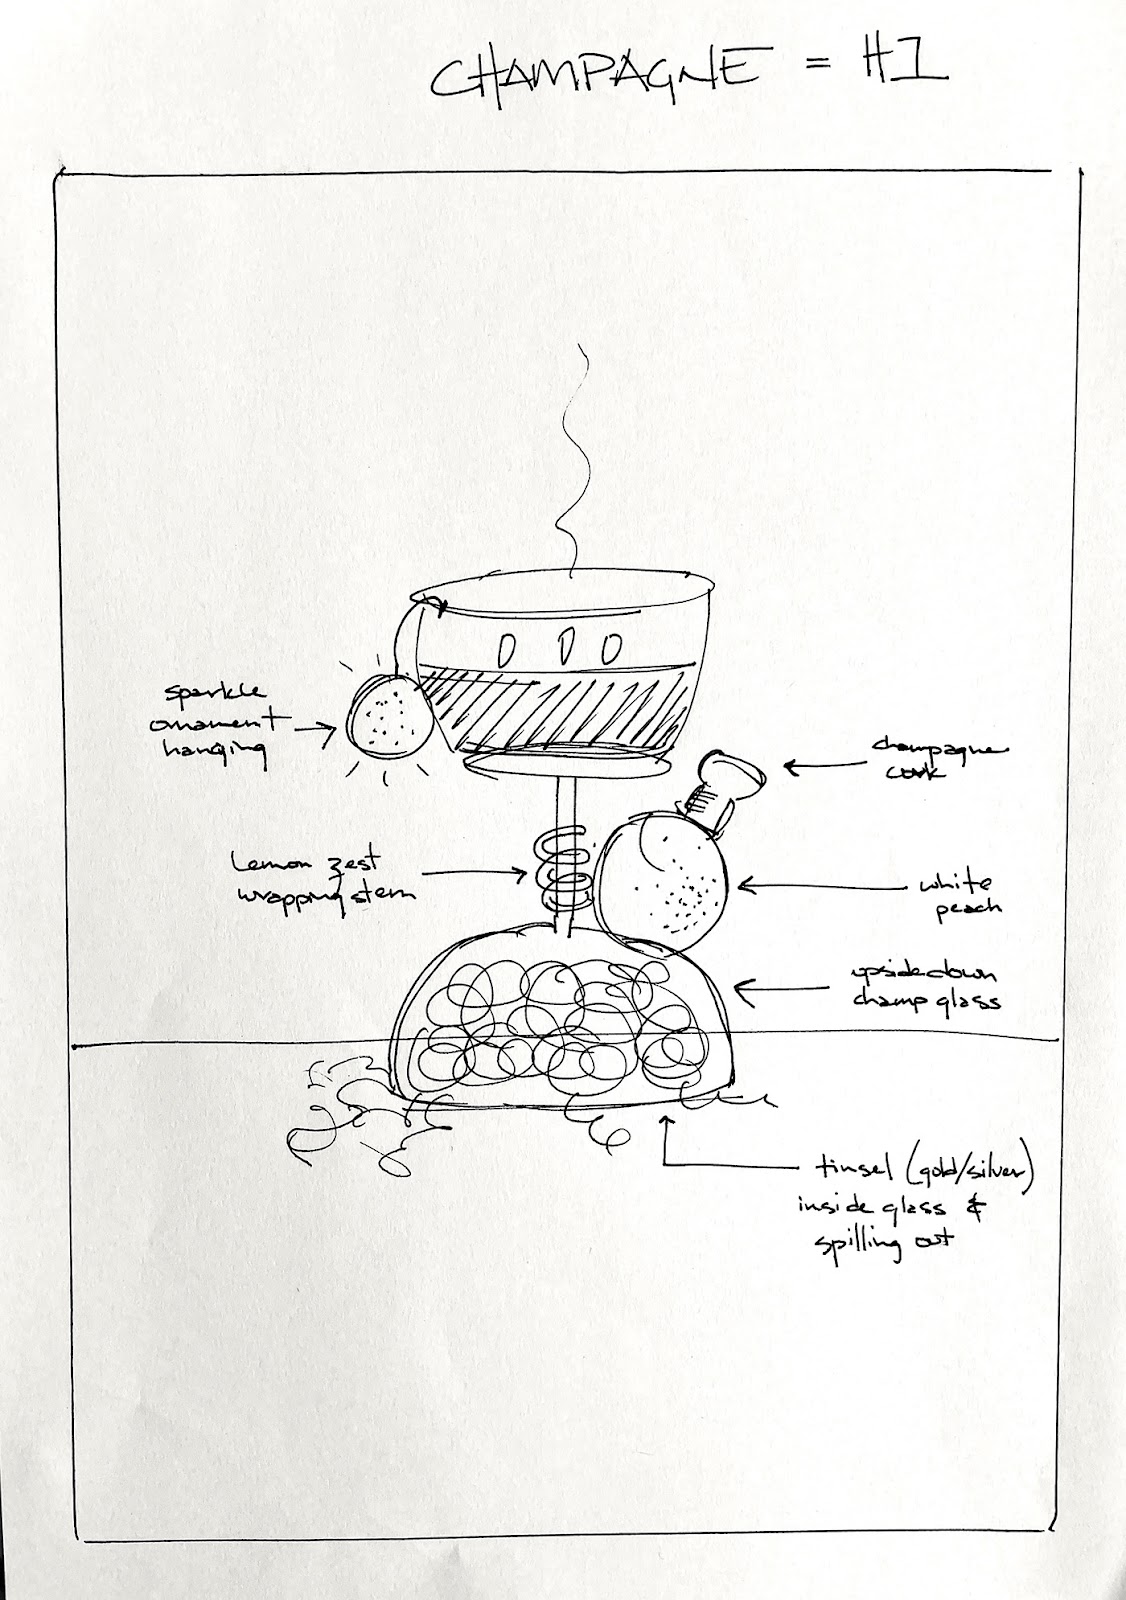 CHAMPAGNE = H1
sparkle
ornament
hanging
champagne
cork
Lemon zest
wrapping stem
white
peach
upside down
champ glass
tinsel (gold/silver)
inside glass &
spilling out